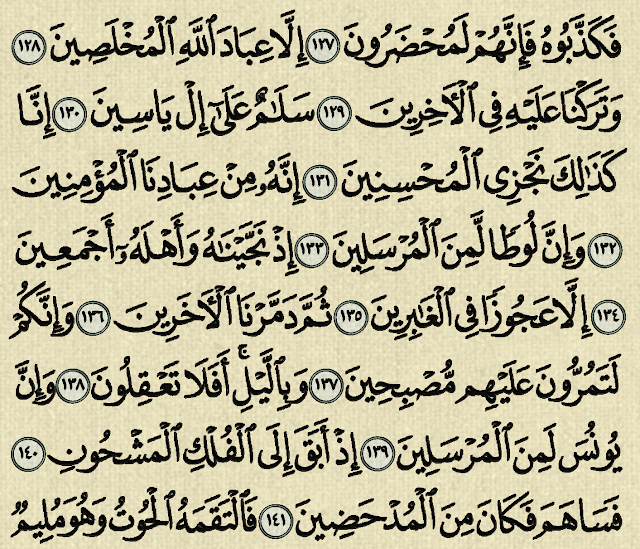 فَكَذَّبُوهُ فَإِنَّهُمْ لَمُحْضَرُونَ ١٢٧ إِلَّا عِبَادَ ٱللَّهِ ٱلْمُخْلَصِينَ ١٢٨
وَتَرَكْنَا عَلَيْهِ فِى ٱلْـَٔاخِرِينَ ١٢٩ سَلَـٰمٌ عَلَىٰٓ إِلْ يَاسِينَ ١٣٠ إِنَّا
كَذَٰلِكَ نَجْزِى ٱلْمُحْسِنِينَ ١٣١ إِنَّهُۥ مِنْ عِبَادِنَا ٱلْمُؤْمِنِينَ
١٣٢ وَإِنَّ لُوطًا لَّمِنَ ٱلْمُرْسَلِينَ ١٣٣ إِذْ نَجَّيْنَـٰهُ وَأَهْلَهُۥٓ أَجْمَعِينَ
١٣٤ إِلَّا عَجُوزًا فِى ٱلْغَـٰبِرِينَ ١٣٥ ثُمَّ دَمَّرْنَا ٱلْـَٔاخَرِينَ ١٣٦ وَإِنَّكُمْ
لَتَمُرُّونَ عَلَيْهِم مُّصْبِحِينَ ١٣٧ وَبِٱلَّيْلِ ۗ أَفَلَا تَعْقِلُونَ ١٣٨ وَإِنَّ
يُونُسَ لَمِنَ ٱلْمُرْسَلِينَ ١٣٩ إِذْ أَبَقَ إِلَى ٱلْفُلْكِ ٱلْمَشْحُونِ ١٤٠
فَسَاهَمَ فَكَانَ مِنَ ٱلْمُدْحَضِينَ ١٤١ فَٱلْتَقَمَهُ ٱلْحُوتُ وَهُوَ مُلِيمٌ